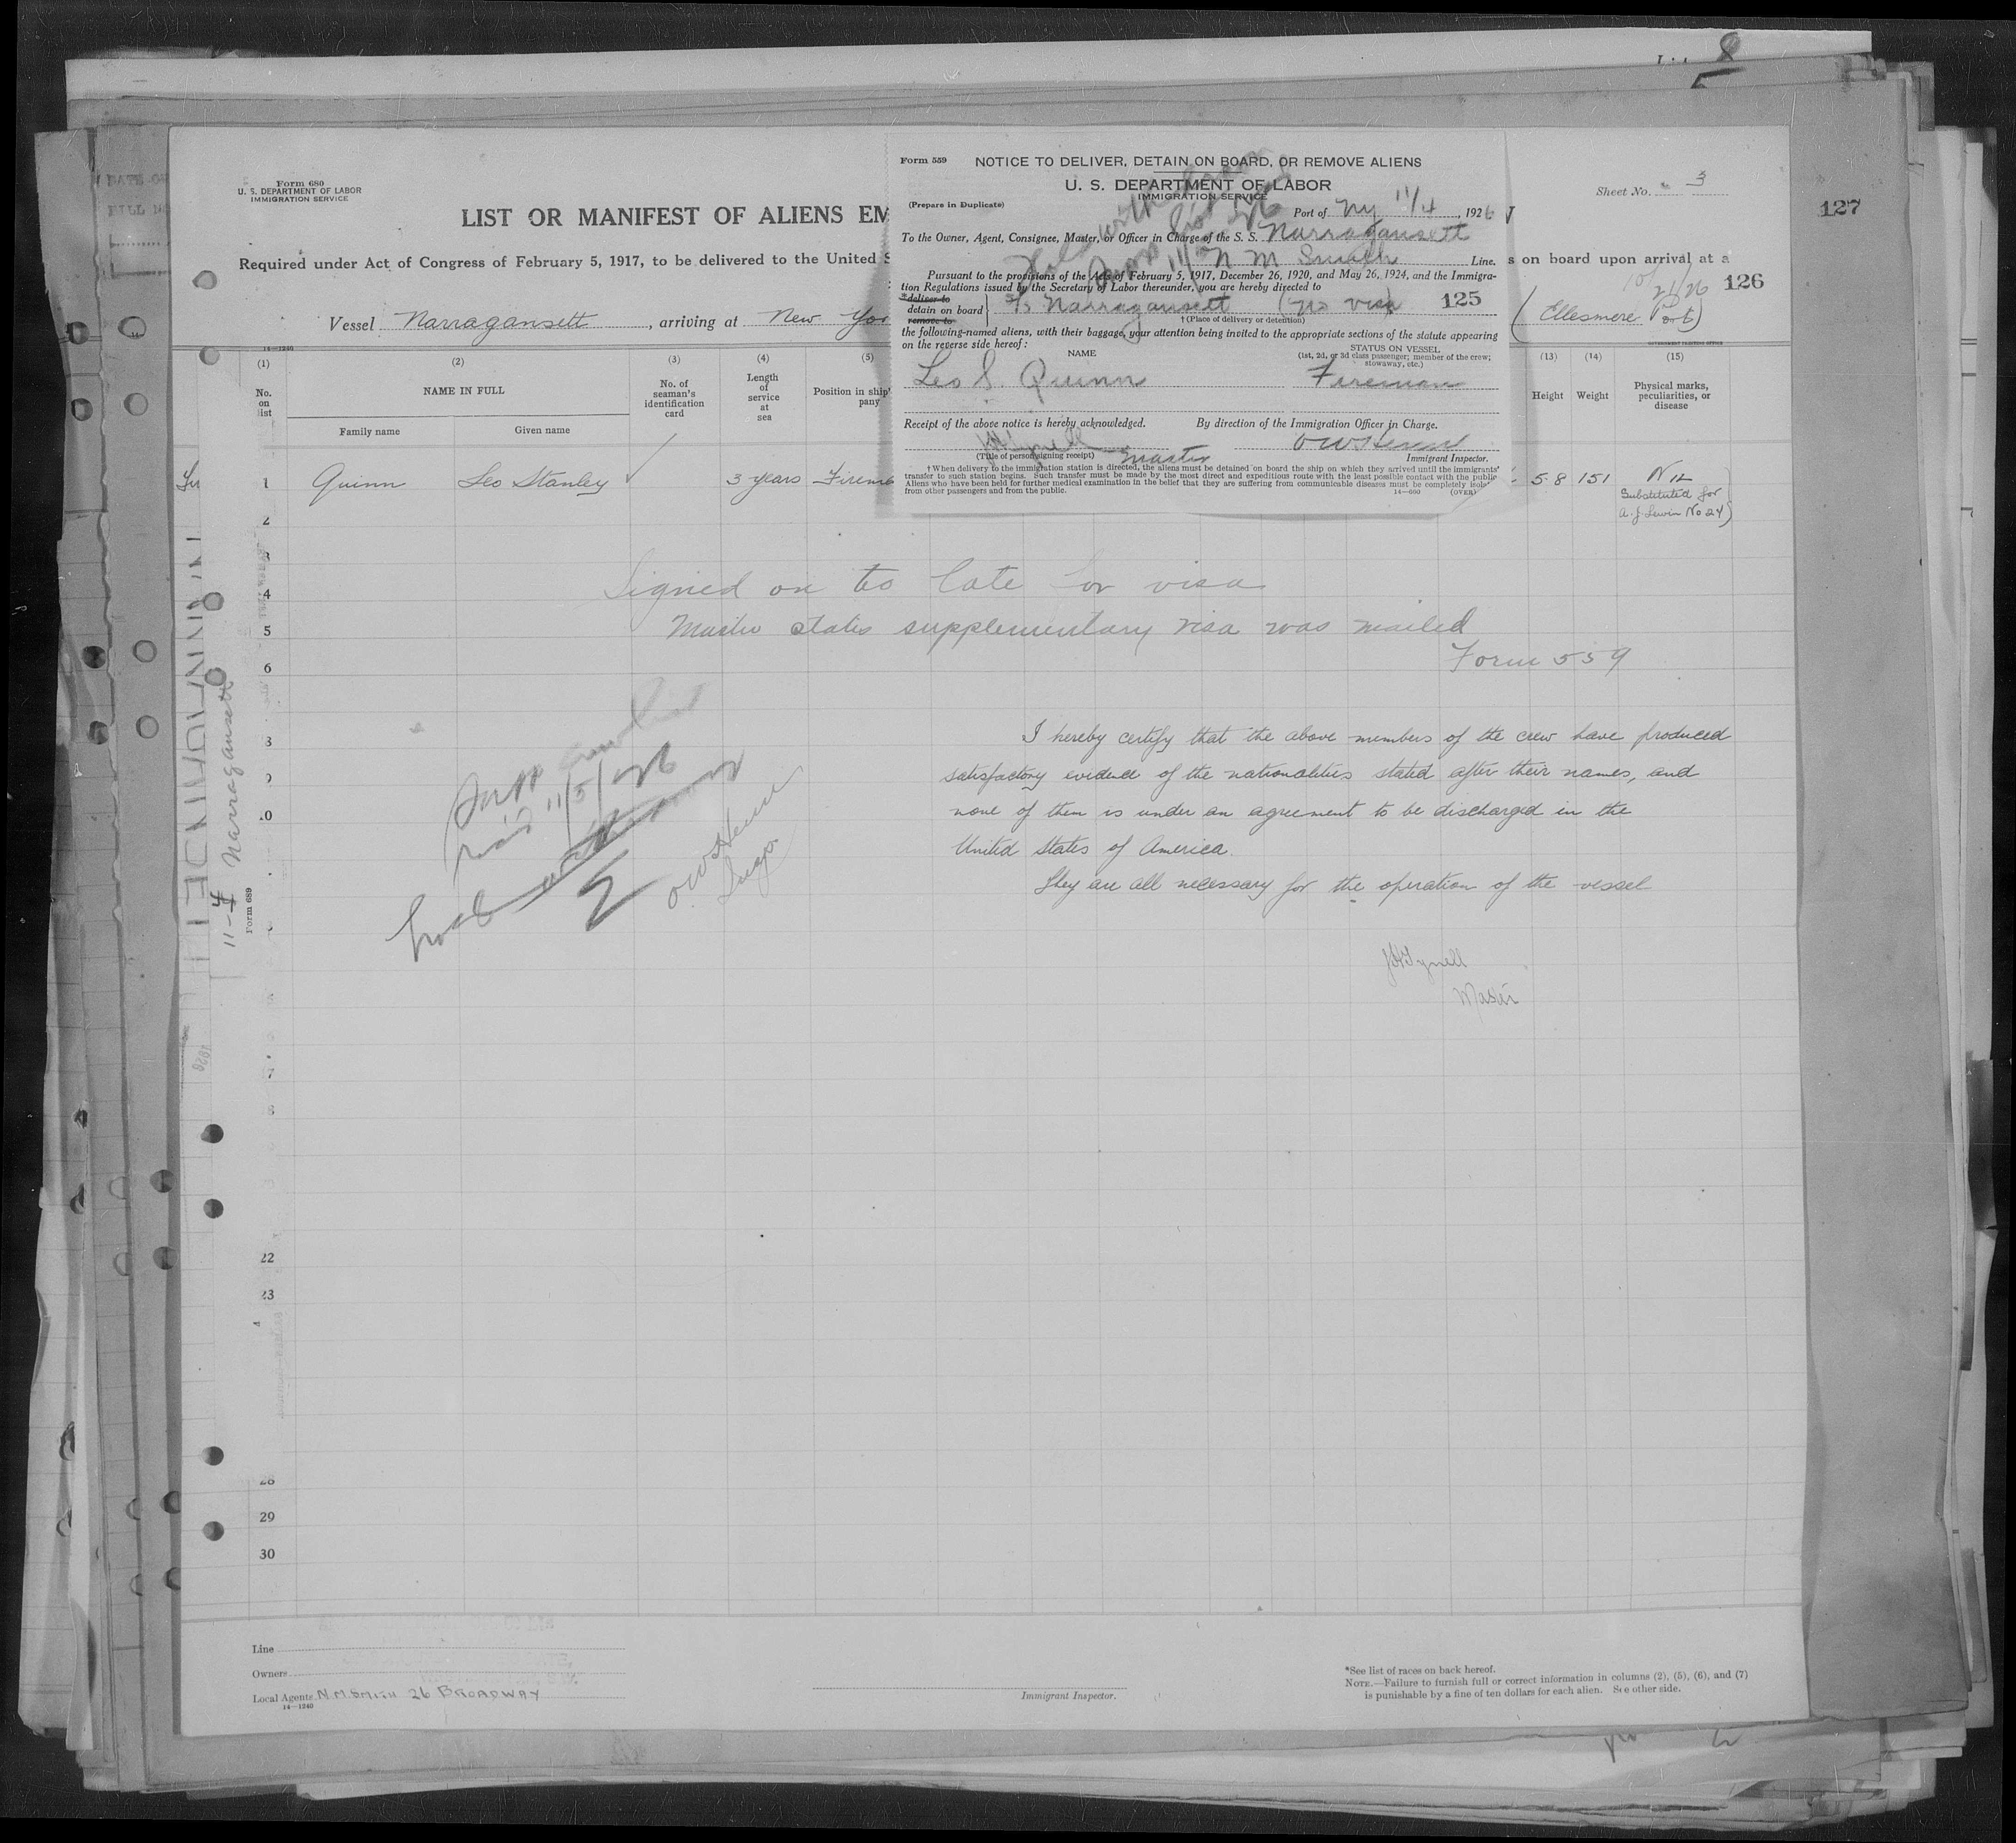 8
127
Form 680
U. S. DEPARTMENT OF LABOR
IMMIGRATION SERVICE
Sheet No. 3
LIST OR MANIFEST OF ALIENS EM
Required under Act of Congress of February 5, 1917, to be delivered to the United S
s on board upon arrival at a
10/21/26
126
Vessel Narragansett, arriving at New Yor
(Ellesmere Port)
Form 559
NOTICE TO DELIVER, DETAIN ON BOARD, OR REMOVE ALIENS
U. S. DEPARTMENT OF LABOR
IMMIGRATION SERVICE
(Prepare in Duplicate)
Port of NY 11/4, 1926
To the Owner, Agent, Consignee, Master, or Officer in Charge of the S. S. Narragansett
N M Smith Line.
Pursuant to the provisions of the Acts of February 5, 1917, December 26, 1920, and May 26, 1924, and the Immigra-
tion Regulations issued by the Secretary of Labor thereunder, you are hereby directed to
*deliver to
detain on board
remove to
S/s Narragansett (no visa) 125
†(Place of delivery or detention)
the following-named aliens, with their baggage, your attention being invited to the appropriate sections of the statute appearing
on the reverse side hereof:
NAME
STATUS ON VESSEL
(1st, 2d, or 3d class passenger; member of the crew;
stowaway, etc.)
Leo S. Quinn Fireman
Receipt of the above notice is hereby acknowledged. By direction of the Immigration Officer in Charge.
Master
(Title of person signing receipt) Immigrant Inspector.
†When delivery to the immigration station is directed, the aliens must be detained on board the ship on which they arrived until the immigrants'
transfer to such station begins. Such transfer must be made by the most direct and expeditious route with the least possible contact with the public
Aliens who have been held for further medical examination in the belief that they are suffering from communicable diseases must be completely isolat
from other passengers and from the public. 14—660 (OVER)
14—1240
(1) (2) (3) (4) (5) (13) (14) (15)
No. on list
NAME IN FULL
Family name Given name
No. of seaman's identification card
Length of service at sea
Position in ship'
pany
Height Weight
Physical marks, peculiarities, or disease
1 Quinn Leo Stanley 3 years Firem 5 8 151
Substituted for
A. J. Lewin No 24)
2
3
4
Signed on to late for visa
5
Master states supplementary visa was mailed
6
Form 559
I hereby certify that the above members of the crew have produced
satisfactory evidence of the nationalities stated after their names, and
none of them is under an agreement to be discharged in the
United States of America.
They are all necessary for the operation of the vessel
J H Tynell
Master
11/5/26
Insp.
11-4 Narragansett
Form 689
22
23
28
29
30
Line
Owners
Local Agents N. M. SMITH 26 BROADWAY
14—1240
Immigrant Inspector.
*See list of races on back hereof.
NOTE.—Failure to furnish full or correct information in columns (2), (5), (6), and (7)
is punishable by a fine of ten dollars for each alien. See other side.